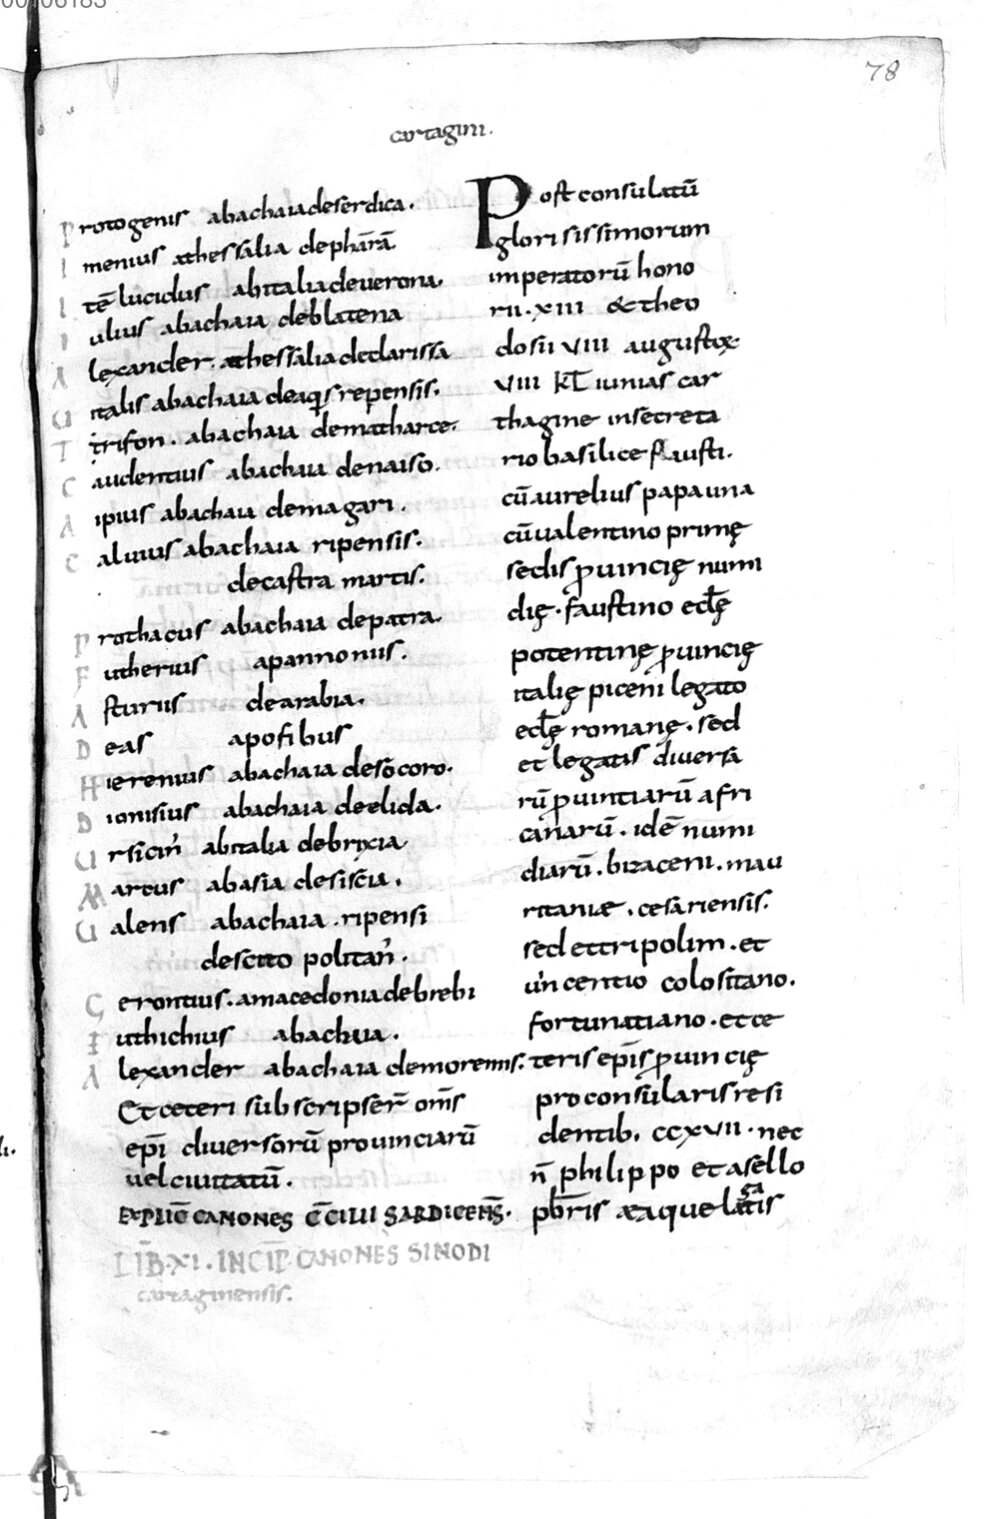 78
cartagini.
Protogenis abachaia deserdica.
Imenius athessalia depharā
Itē lucidus abitalia deuerona.
Iulius abachaia deblatena
Alexander. athessalia declarissa
Uitalis abachaia deaq̄s repensis.
Trifon. abachaia dematharce.
Caudentius abachaia denaiso.
Aipius abachaia demagari.
Caluius abachaia ripensis.
decastra martis.
Prothacus abachaia depatra.
Futherius apannoniis.
Asturiis dearabia.
Deas apofibus
Hierenius abachaia desōcoro.
Dionisius abachaia deelida.
Ursicin' abitalia debrixia
Marcus abasia desiscia.
Ualens abachaia. ripensi
descito politan'.
Gerontius. amacedonia debrebi
Euthichius abachaia.
Alexander abachaia demorenis.
Et ceteri subscripser̄ om̄s
epī diuersorū prouinciarū
uel ciuitatū.
EXPLIC̄ CANONES C̄CILII SARDICENS̄.
LIB̄. XI. INCIP̄ CANONES SINODI
cartaginensis.
Post consulatū
glorisissimorum
imperatorū hono
rii. xiii & theo
dosii viii augustox
viii kł iunias car
thagine insecreta
rio basilice fausti.
cū aurelius papa una
cū ualentino primę
sedis p̱uincię numi
dię. faustino eclę̄
potentinę p̱uincię
italię piceni legato
eclę̄ romanę. sed
et legatis diuersa
rū p̱uintiarū afri
canarū. idē numi
diarū. bizaceni. mau
ritaniæ. cesariensis.
sed et tripolim. et
uincentio colositano.
fortunatiano. et ce
teris ep̄is p̱uincię
proconsularis resi
dentib. ccxvii. nec
n̄ philippo et asello
pb̄ris ætaque legatis